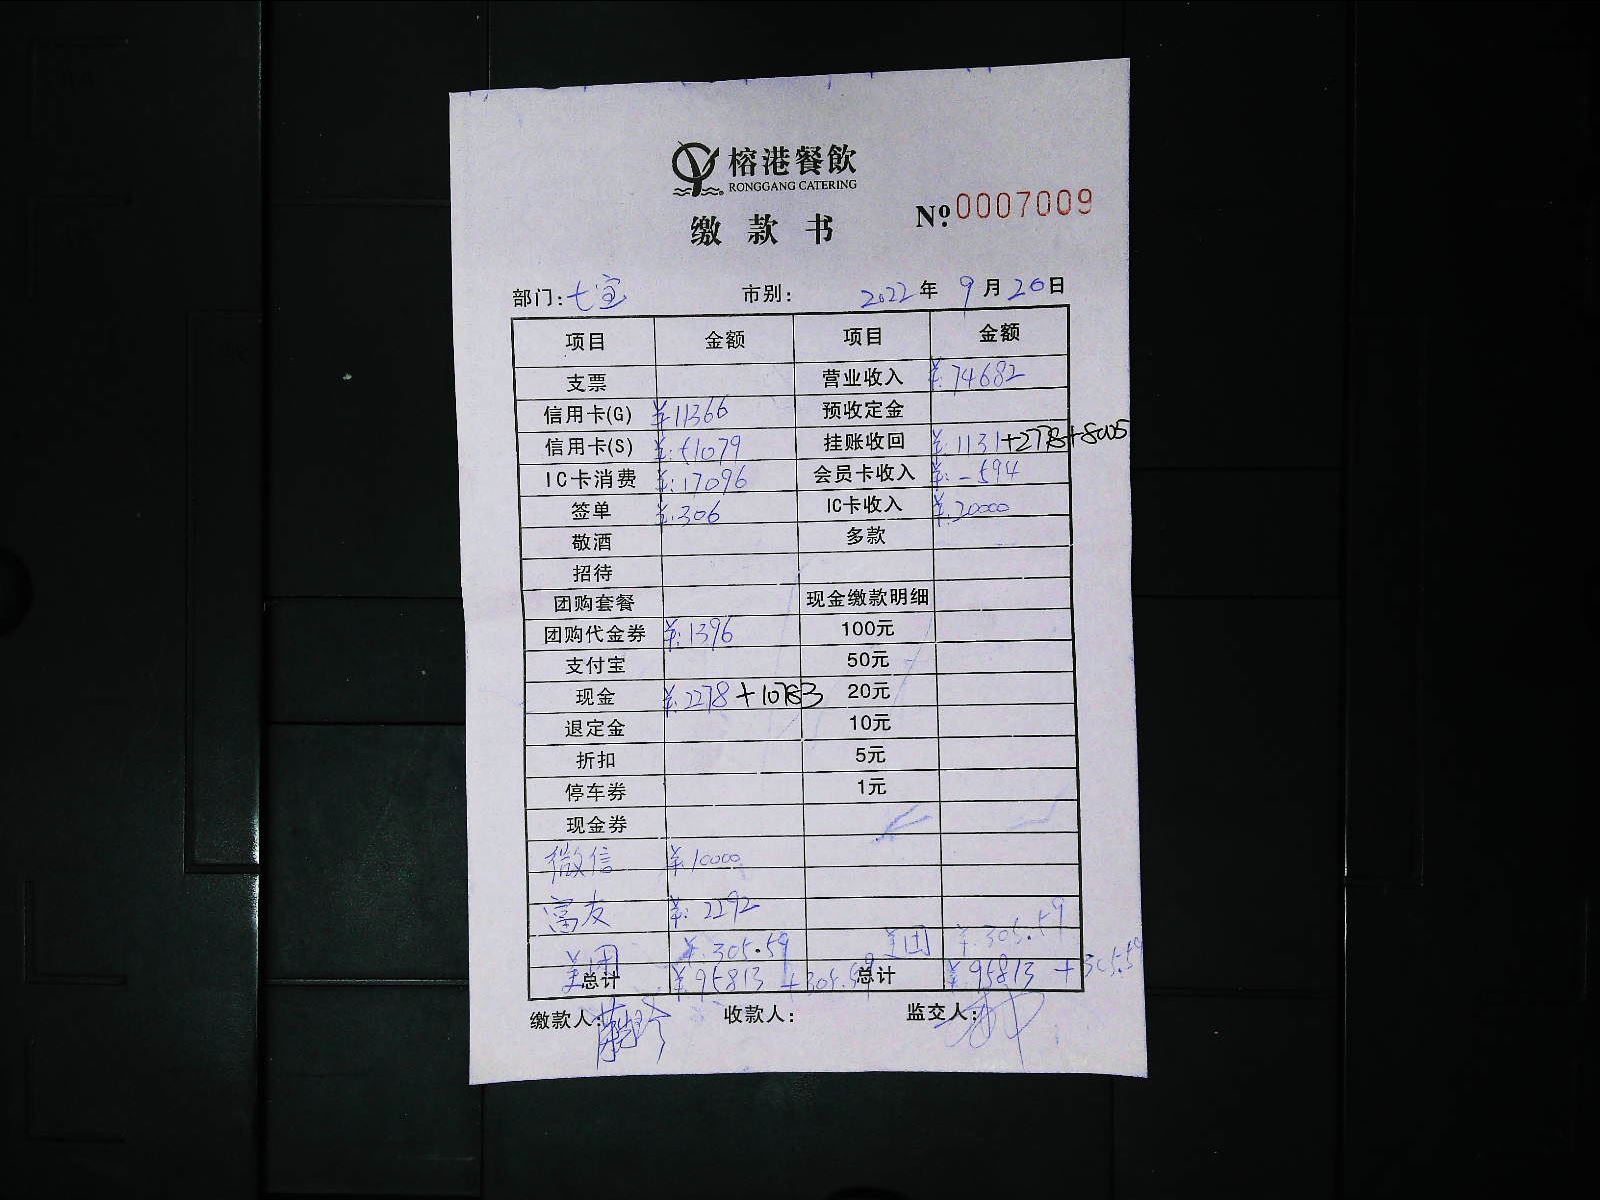 榕港餐飲
RONGGANG CATERING
缴款书 №:0007009
部门:七宝 市别: 2022年9月20日
项目 金额 项目 金额
支票 营业收入 ¥:74682
信用卡(G) ¥11366 预收定金
信用卡(S) ¥:51079 挂账收回 ¥:1131+2778+8005
IC卡消费 ¥:17096 会员卡收入 ¥:-594
签单 ¥:306 IC卡收入 ¥:20000
敬酒 多款
招待
团购套餐 现金缴款明细
团购代金券 ¥:1396 100元
支付宝 50元
现金 ¥:2278+10783 20元
退定金 10元
折扣 5元
停车券 1元
现金券
微信 ¥:10000
富友 ¥:2292
美团 ¥:305.59 美团 ¥:305.59
总计 ¥:95813+305.59 总计 ¥:95813+305.59
缴款人: 收款人: 监交人: